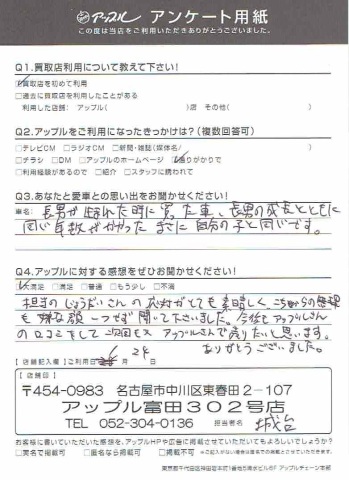 アップル アンケート用紙
この度は当店をご利用いただきありがとうございました。
Q1.買取店利用について教えて下さい!
□買取店を初めて利用
□過去に買取店を利用したことがある
利用した店舗: アップル( )店 その他( )
Q2.アップルをご利用になったきっかけは?(複数回答可)
□テレビCM □ラジオCM □新聞・雑誌(媒体名/ )
□チラシ □DM □アップルのホームページ □通りがかりで
□利用経験があるので □紹介 □スタッフに誘われて
Q3.あなたと愛車との思い出をお聞かせください!
車名: 長男が生まれた時に買った車、長男の成長とともに
同じ年数がかかった まさに自分の子と同じです。
Q4.アップルに対する感想をぜひお聞かせください!
□大満足 □満足 □普通 □もう少し □不満
担当のじょうだいさんの応対がとても素晴しく、こちらからの無理
も嫌な顔一つせず聞いて下さいました。今後もアップルさん
の口コミをして次回もアップルさんで売りたいと思います。
ありがとうございました。
【店舗記入欄】ご利用日 6/24
【店舗名】
〒454-0983 名古屋市中川区東春田2-107
アップル富田302号店
TEL 052-304-0136 担当者名 城台
お客様に書いていただいた感想を、アップルHPや広告に掲載させていただいてもよろしいでしょうか?
□実名で掲載可 □匿名なら掲載可 □掲載不可
東京都千代田区神田岩本町1番地5清水ビル6F アップルチェーン本部